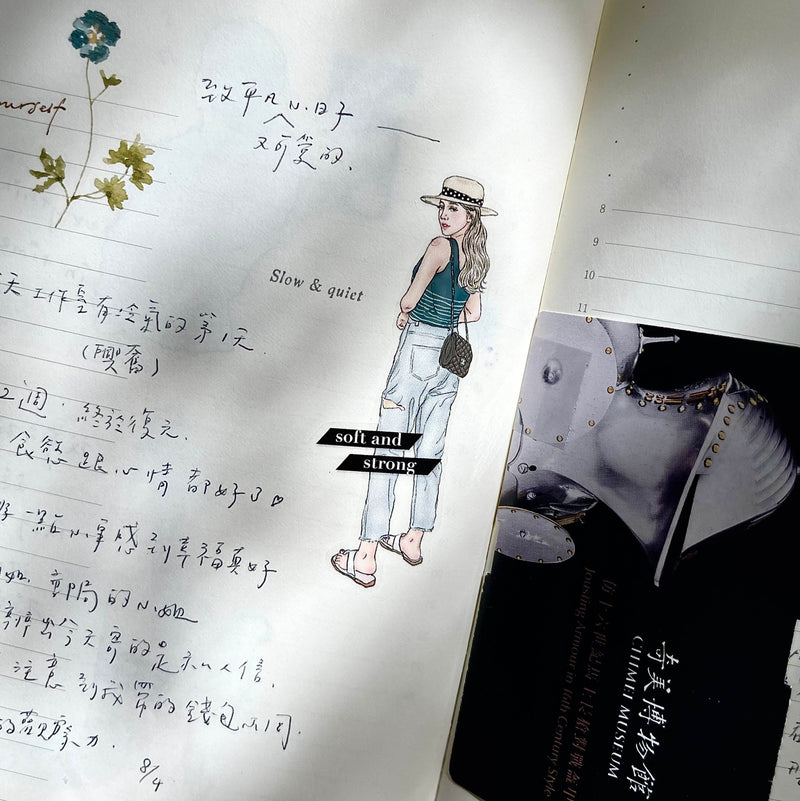 致平凡小日子 —
又可愛的、
Slow & quiet
天 工作室有冷氣的 第1天
(興奮)
2週. 終於復元.
食慾跟心情 都好了♡
一點小事感到幸福真好
郵局的小姐
出今天寄的是私人信.
注意到我帶的錢包不同.
的觀察力.
8/4
soft and
strong
8
9
10
11
奇美博物館
CHIMEI MUSEUM
Jousting Armour in 16th Century Style